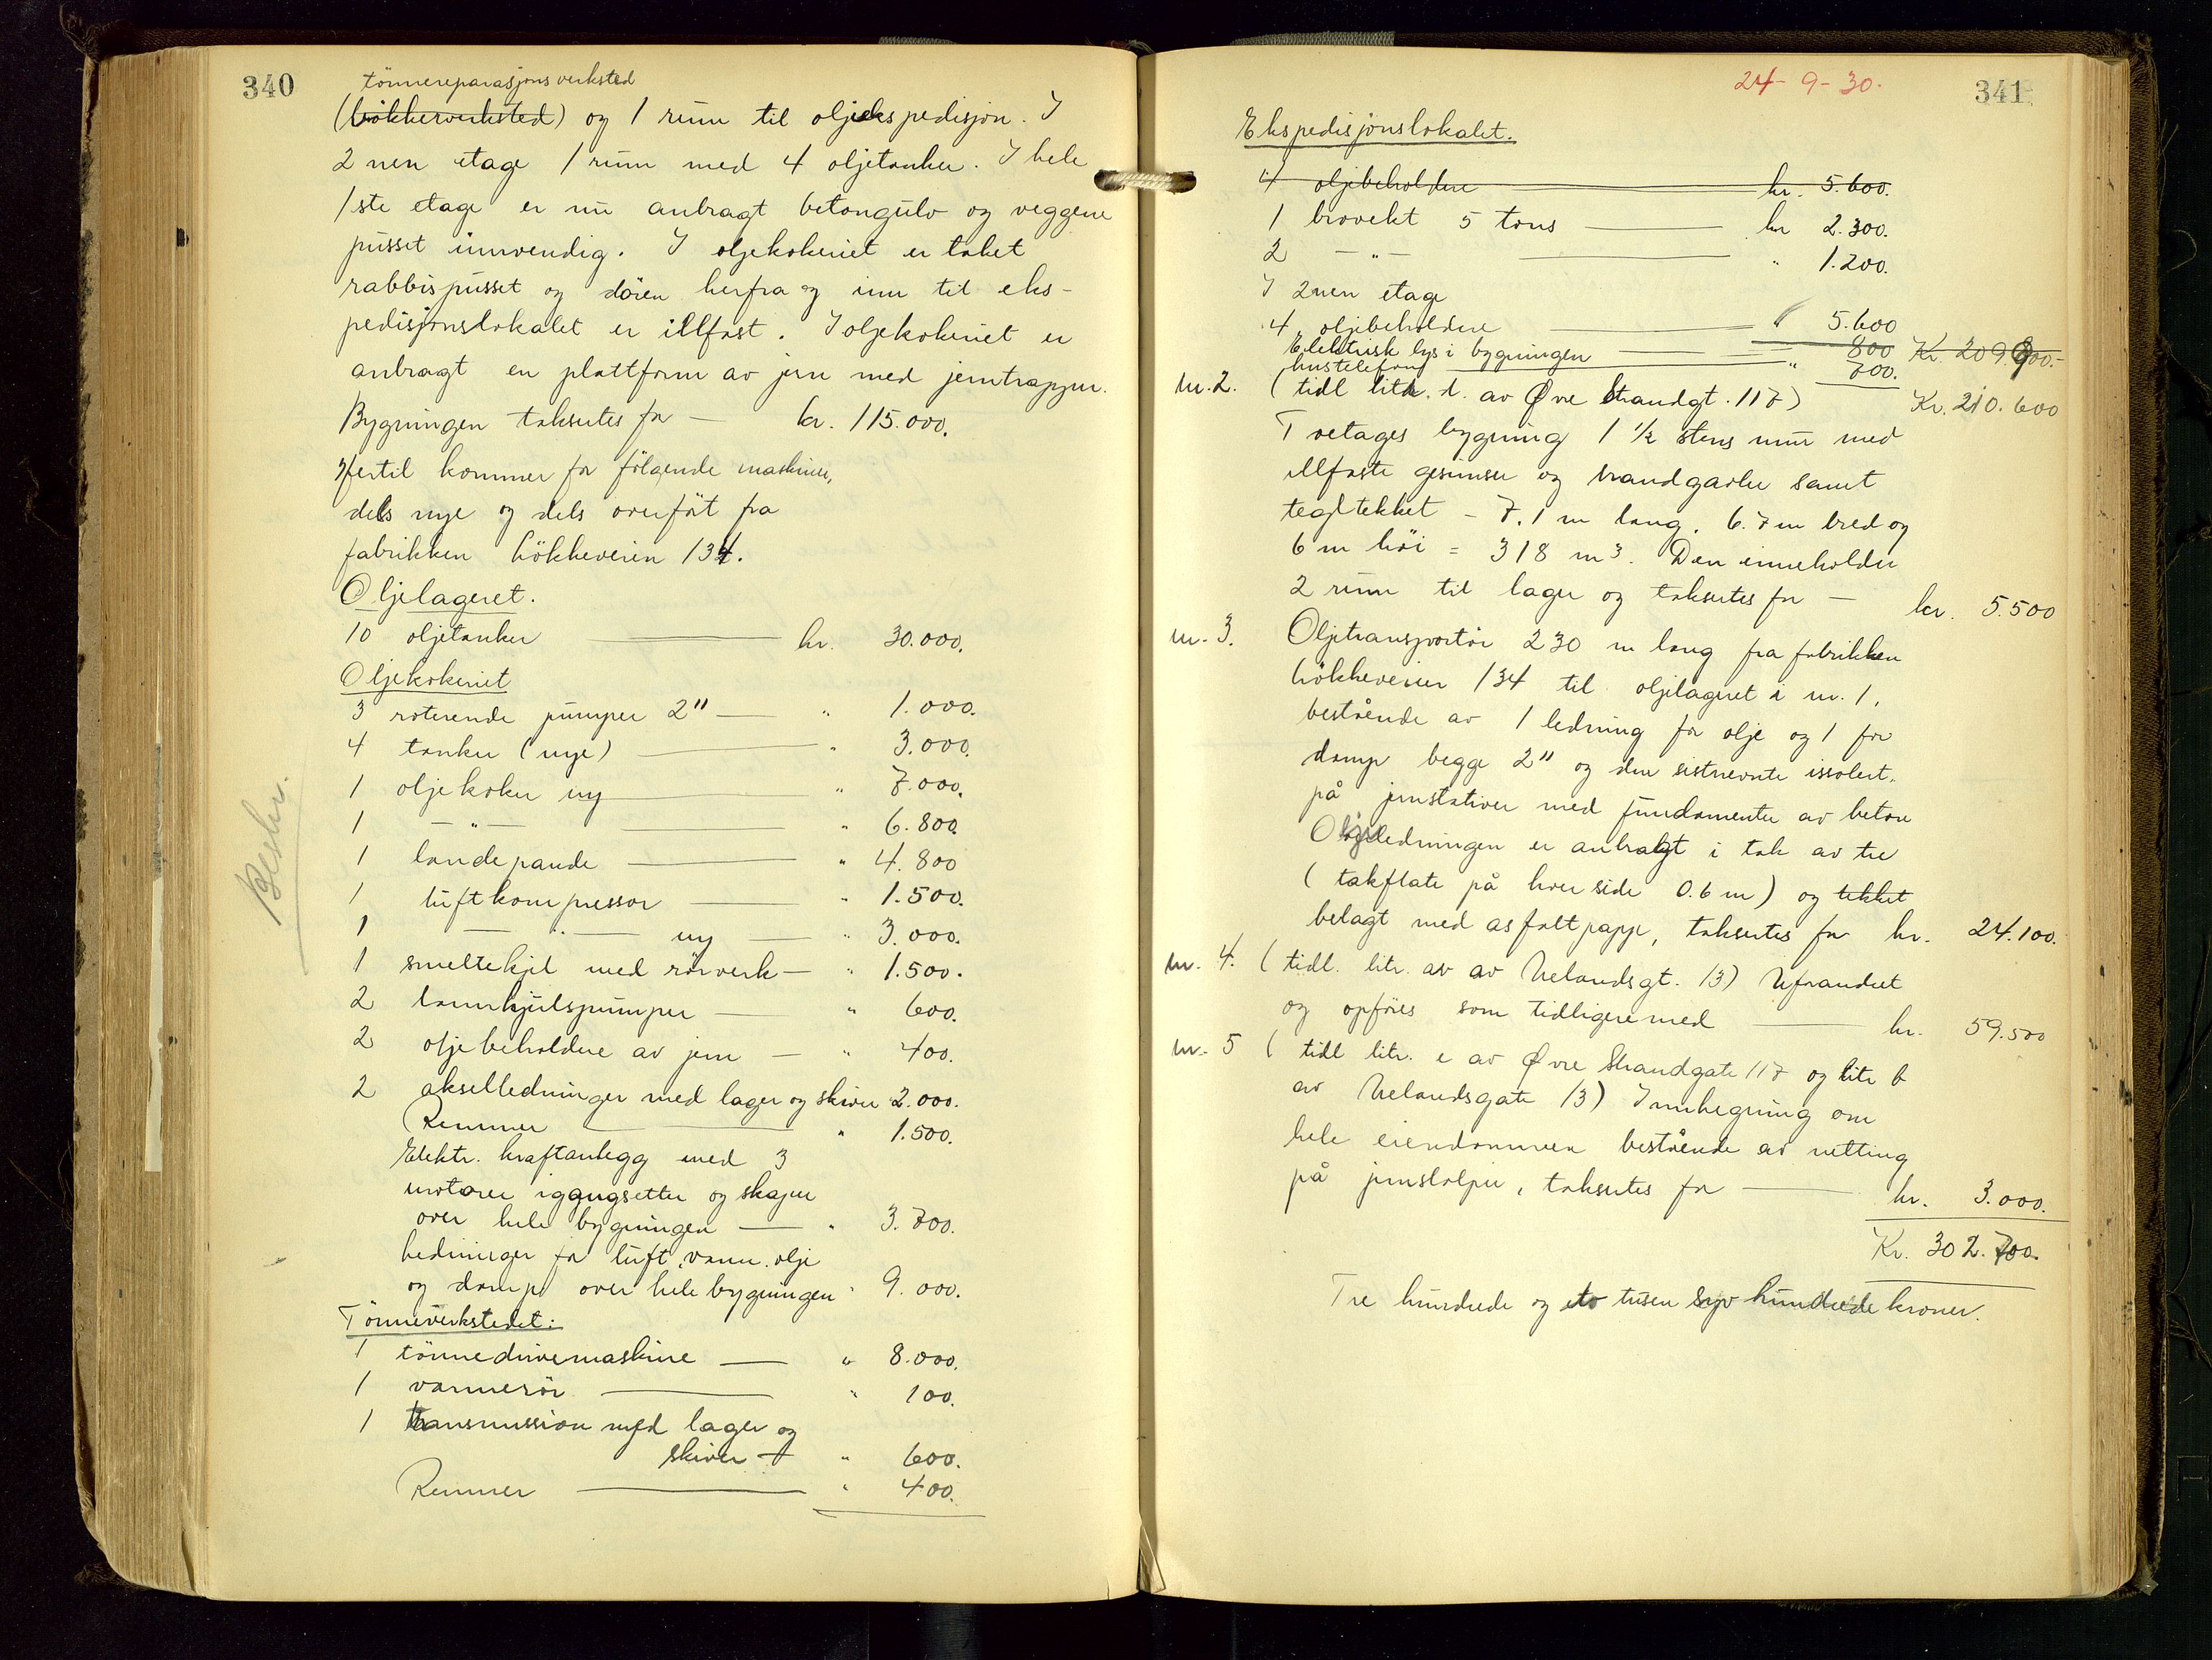 340
tönnereparasjonsverksted
(bökkerverksted) og 1 rum til oljeekspedisjon. I
2nen etage 1 rum med 4 oljetanker. I hele
1ste etage er nu anbragt betongulv og veggene
pusset innvendig. I oljekokeriet er taket
rabbispusset og dören herfra og inn til eks-
pedisjonslokalet er illfast. I oljekokeriet er
anbragt en plattform av jern med jerntrapper.
Bygningen takseres for — kr. 115.000.
Hertil kommer for fölgende maskiner,
dels nye og dels overfört fra
fabrikken Lökkeveien 134.
Oljelageret.
10 oljetanker kr. 30.000.
Oljekokeriet
3 roterende pumper 2" — " 1.000.
4 tanker (nye) " 3.000.
1 oljekoker ny " 7.000.
1 — " — " 6.800.
1 landepande " 4.800
1 luftkompressor " 1.500.
1 — " — ny — " 3.000.
1 smeltekjel med rörverk — " 1.500.
2 tannhjulspumper — " 600.
2 oljebeholdere av jern — " 400.
2 akselledninger med lager og skiver 2.000.
Remmer " 1.500.
Elektr. kraftanlegg med 3
motorer igangsetter og skaper
over hele bygningen — " 3.700.
Ledninger for luft, vann, olje
og damp over hele bygningen " 9.000.
Tönneverkstedet:
1 tönnedrivemaskine — " 8.000.
1 vannerör " 100.
1 transmission med lager og
skiver — " 600.
Remmer " 400.
Beskr.
24-9-30.
341
Ekspedisjonslokalet.
4 oljebeholdere kr. 5.600.
1 brovekt 5 tons kr 2.300.
2 — " — " 1.200.
I 2nen etage
4 oljebeholdere " 5.600
Elektrisk lys i bygningen 800 Kr. 209.900.-
hustelefon " 700.
nr. 2. (tidl litr. d. av Øvre Strandgt. 117) Kr. 210.600
Toetages bygning 1 1/2 stens mur med
illfaste gesimser og brandgavler samt
tegltekket - 7.1 m lang, 6.7 m bred og
6 m höi = 318 m3. Den inneholder
2 rum til lager og takseres for — kr. 5.500
nr. 3. Oljetransportör 230 m lang fra fabrikken
Lökkeveien 134 til oljelageret i nr. 1,
bestående av 1 ledning for olje og 1 for
damp begge 2" og den sistnevnte issolert.
på jernstativer med fundamenter av beton
Oljeledningen er anbragt i tak av tre
(takflate på hver side 0.6 m) og tekket
belagt med asfaltpapp, takseres for kr. 24.100.
nr. 4. (tidl. litr. av av Uelandsgt. 13) Uforandret
og opföres som tidligere med kr. 59.500
nr. 5 (tidl litr. e av Øvre Strandgate 117 og litr b
av Uelandsgate 13) Innhegning om
hele eiendommen bestående av netting
på jernstolper, takseres for kr. 3.000.
Kr. 302.700.
Tre hundrede og to tusen syv hundrede kroner.